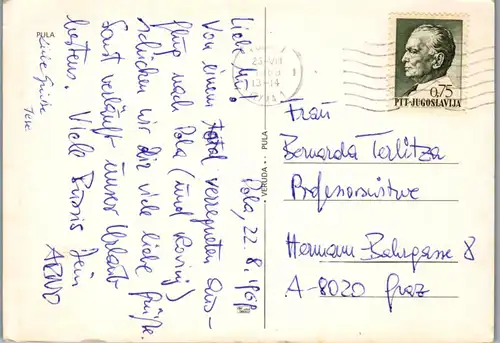 PULA
Pola, 22.8.1969
Liebe Mu!
Von einem total verregneten Aus-
flug nach Pola (und Rovinj)
schicken wir Dir viele liebe Grüße.
Sonst verläuft unser Urlaub
bestens. Viele Bussis Dein
ARND
Liebe Grüße
VERUDA • PULA
23-VIII
13-14
0.75
PTT-JUGOSLAVIJA
Frau
Bernarda Terlitza
Professorswitwe
Hermann Bahrgasse 8
A-8020 Graz